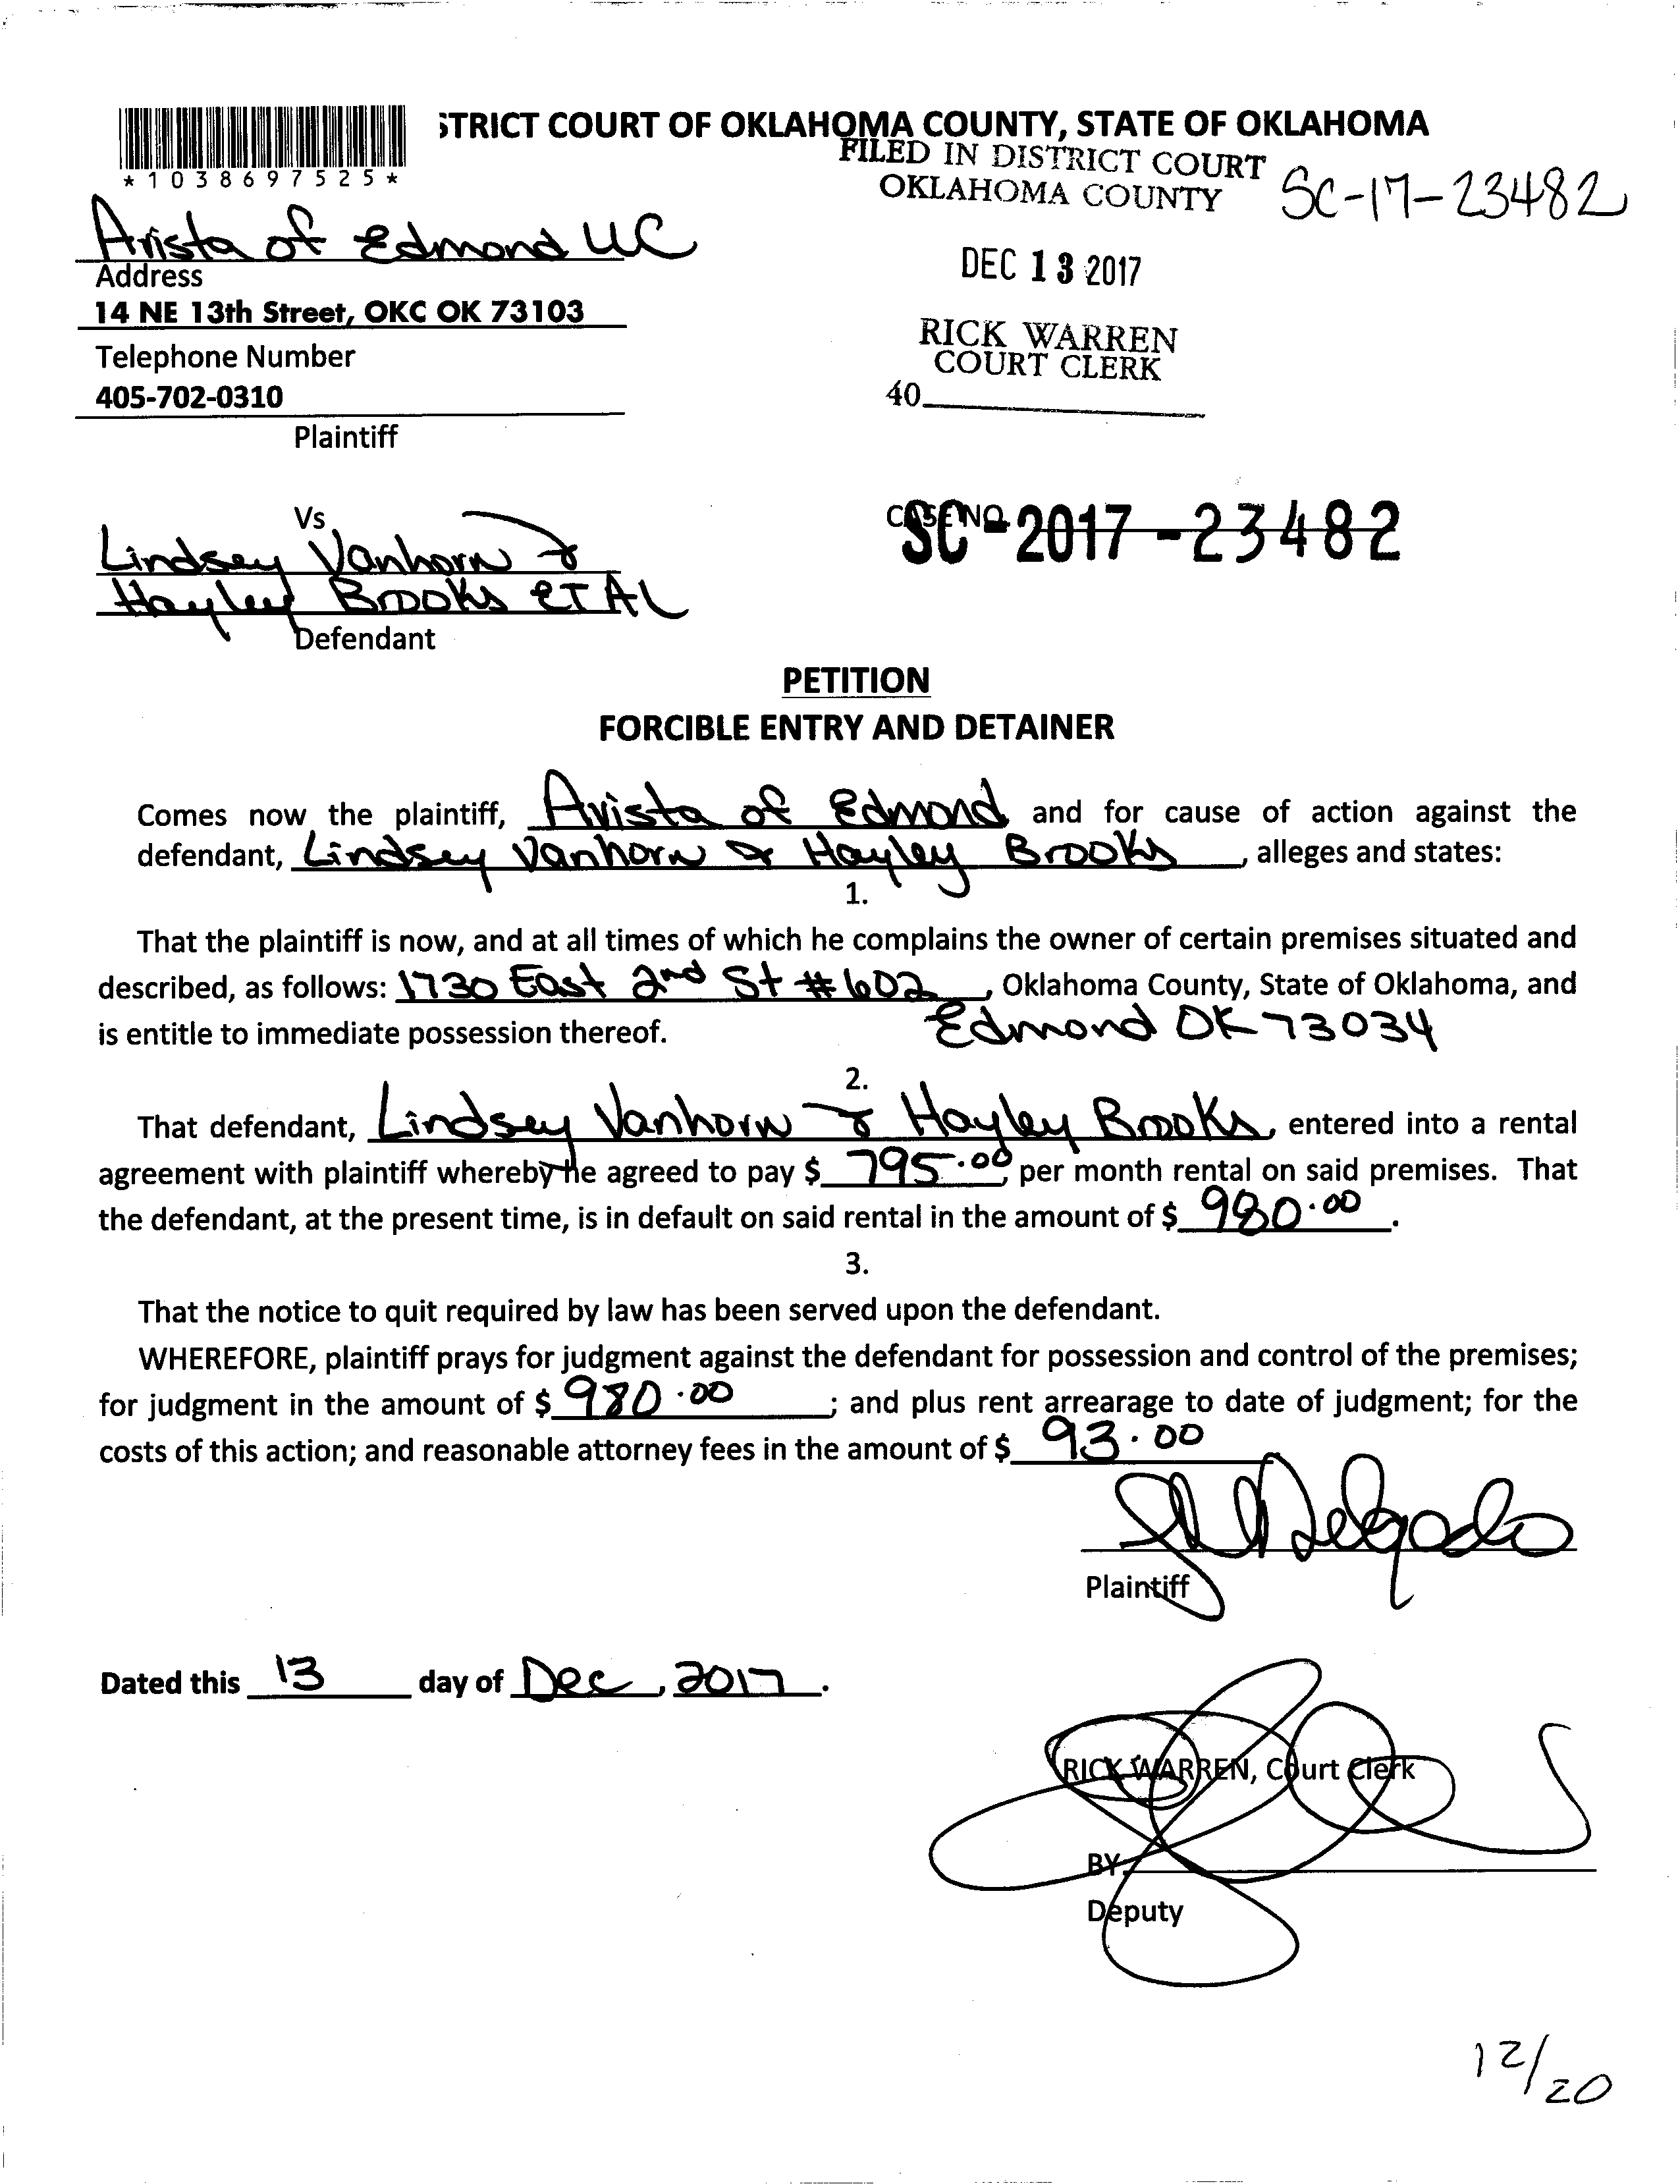 STRICT COURT OF OKLAHOMA COUNTY, STATE OF OKLAHOMA
*1038697525*
FILED IN DISTRICT COURT
OKLAHOMA COUNTY
SC-17-23482
Avista of Edmond LLC
Address
DEC 13 2017
14 NE 13th Street, OKC OK 73103
RICK WARREN
COURT CLERK
Telephone Number
405-702-0310
40
Plaintiff
Vs
CASE NO.
SC-2017-23482
Lindsey Vanhorn &
Hayley Brooks ET AL
Defendant
PETITION
FORCIBLE ENTRY AND DETAINER
Comes now the plaintiff, Avista of Edmond and for cause of action against the
defendant, Lindsey Vanhorn & Hayley Brooks, alleges and states:
1.
That the plaintiff is now, and at all times of which he complains the owner of certain premises situated and
described, as follows: 1730 East 2nd St #602, Oklahoma County, State of Oklahoma, and
is entitle to immediate possession thereof. Edmond OK 73034
2.
That defendant, Lindsey Vanhorn & Hayley Brooks, entered into a rental
agreement with plaintiff whereby he agreed to pay $ 795.00, per month rental on said premises. That
the defendant, at the present time, is in default on said rental in the amount of $ 980.00.
3.
That the notice to quit required by law has been served upon the defendant.
WHEREFORE, plaintiff prays for judgment against the defendant for possession and control of the premises;
for judgment in the amount of $ 980.00; and plus rent arrearage to date of judgment; for the
costs of this action; and reasonable attorney fees in the amount of $ 93.00
Delgado
Plaintiff
Dated this 13 day of Dec, 2017.
RICK WARREN, Court Clerk
BY
Deputy
12/20